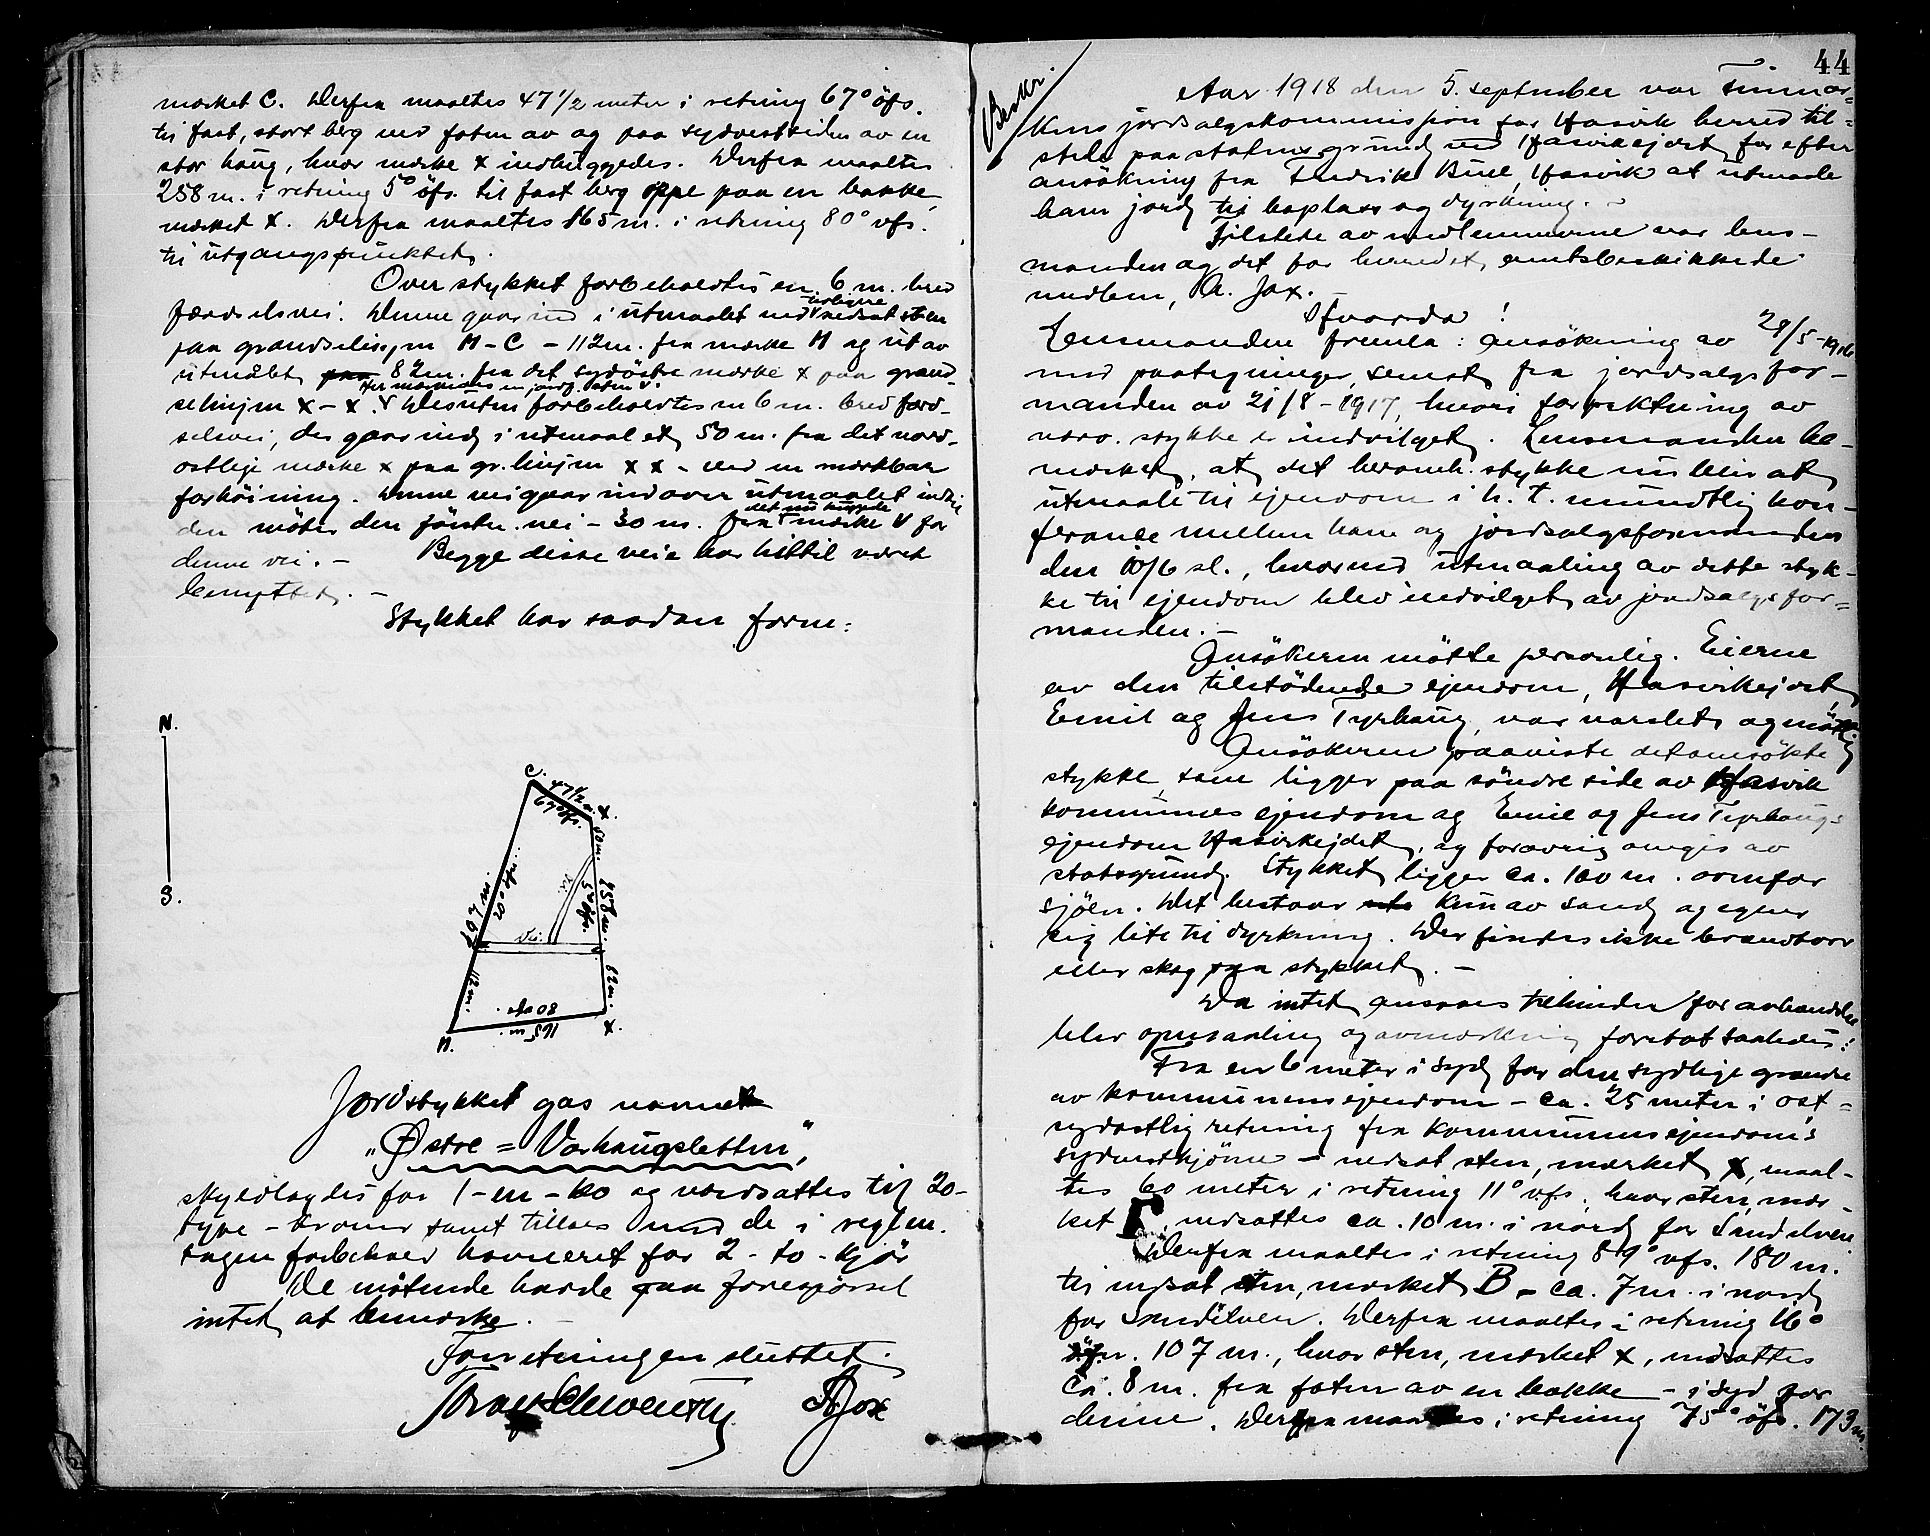 mærket C. Derfra maaltes 47 1/2 meter i retning 67° öfs.
til fast, stort berg ved foten av og paa sydvestsiden av en
stor haug, hvor mærke x indhuggedes. Derfra maaltes
258 m. i retning 5° öfs. til fast berg oppe paa en bakke,
mærket x. Derfra maaltes 165 m. i retning 80° vfs.
til utgangspunktet.
Over stykket forbeholdtes en 6 m. bred
færdselsvei. Denne gaar ind i utmaalet ved nedsat sten
paa grændselinjen H - C - 112 m. fra mærke H og ut av
utmålet paa 82 m. fra det sydöstre mærke x paa grænd-
selinjen x - x. V Desuten forbeholdtes en 6 m. bred færd-
selsvei, der gaar ind i utmaalet 50 m. fra det nord-
østlige mærke x paa gr.linjen x x - ved en mærkbar
forhöining. Denne vei gaar ind over utmaalet indtil
den möter den förste vei - 30 m. fra det nu huggede mærke V for
denne vei. - Begge disse veie har hittil været
benyttet. -
Stykket har saadan form:
N.
S.
C.
47 1/2 m.
67° öfs.
x.
50 m.
197 m.
20° öfs.
vei.
258 m.
5° öfs.
Vei.
112 m.
82 m.
80° vfs.
165 m.
H.
x.
Jordstykket gas navnet
"Østre = Varhaugsletten",
skyldlagdes for 1 - en - ko og værdsattes til 20 -
tyve - kroner samt tillaes med de i reglen.
tagen forbehold havneret for 2 - to - kjör
De mötende havde paa forespörsel
intet at bemærke. -
Forretningen sluttet.
A Jox
44
Beskr.
Aar 1918 den 5. september var Finmar-
kens jordsalgskommission for Hasvik herred til-
stede paa statens grund ved Hasvikejdet for efter
ansökning fra Fredrik Buee, Hasvik at utmaale
ham jord til boplass og dyrkning. -
Tilstede av medlemmerne var lens-
manden og det for herredet amtsbeskikkede
medlem, A. Jox. -
Hvorda!
Lensmanden fremla: Ansökning av 28/5 - 1916
med paategninger, senest fra jordsalgsfor-
manden av 21/8 - 1917, hvori forpaktning av
nævn. stykke er indvilget. Lensmanden be-
mærket, at det heromh. stykke nu blir at
utmaale til ejendom i h. t. mundtlig kon-
ferance mellem ham og jordsalgsformanden
den 10/6 sl., hvorved utmaaling av dette styk-
ke til ejendom blev indvilget av jordsalgsfor-
manden. -
Ansökeren mötte personlig. Eierne
av den tilstödende ejendom, Hasvikejdet,
Emil og Jens Tyrhaug var varslet og mötte
Ansökeren paaviste det ansökte
stykke, som ligger paa söndre side av Hasvik
kommunes ejendom og Emil og Jens Tyrhaugs
ejendom Hasvikejdet, og forøvrig omgis av
statsgrund. Stykket ligger ca. 100 m. ovenfor
sjöen. Det bestaar kun av sand og egner
sig lite til dyrkning. Der findes ikke brændtorv
eller skog paa stykket. -
Da intet ansaaes tilhinder for avhændelse
blev opmaaling og avmærkning foretat saaledes:
Fra en 6 meter i syd for den sydlige grændse
av kommunens ejendom - ca. 25 meter i ost -
sydostlig retning fra kommunens ejendom's
sydvesthjörne - nedsat sten, mærket x, maal-
tes 60 meter i retning 11° vfs. hvor sten, mær-
ket Γ, nedsattes ca. 10 m. i nord for Sandelven
Derfra maaltes i retning 89° vfs. 180 m.
til nedsat sten, mærket B - ca. 7 m. i nord
for Sandelven. Derfra maaltes i retning 16°
öfn. 107 m., hvor sten, mærket x, nedsattes
ca. 8 m. fra foten av en bakke - i syd for
denne. Derfra maaltes i retning 75° öfs. 173 m.